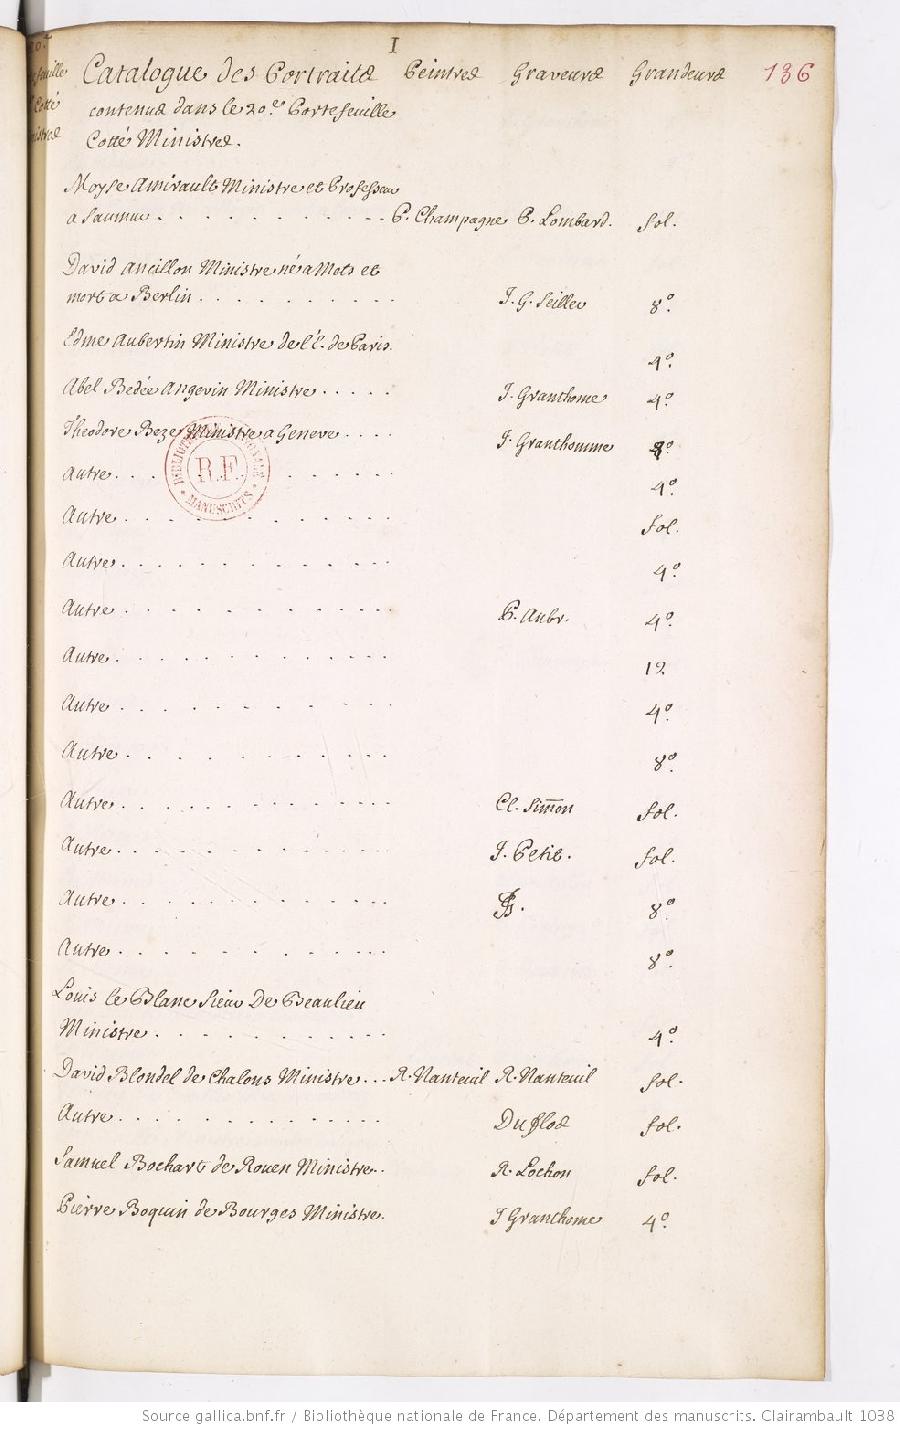 I
Catalogue des Portraits Peintres Graveurs Grandeurs 136
contenus dans le 20.e Portefeuille
Cotté Ministres.
Moyse Amirault Ministre et Professeur
a Saumur . . . . . . . . . . . P. Champagne P. Lombard. fol.
David Ancillon Ministre né a Mets et
mort a Berlin . . . . . . . . . J. G. Seiller 8º.
Edme Aubertin Ministre de l'É. de Paris. 4º.
Abel Bedée Angevin Ministre . . . . . J. Granthome 4º.
Théodore Beze Ministre a Geneve . . . . J. Granthomme 8º.
Autre . . . . . . . . 4º.
Autre . . . . . . . . . . . . fol.
Autre . . . . . . . . . . . . 4º.
Autre . . . . . . . . . . . . P. Aubr. 4º.
Autre . . . . . . . . . . . . 12.
Autre . . . . . . . . . . . . 4º.
Autre . . . . . . . . . . . . 8º.
Autre . . . . . . . . . . . . Cl. Sim̄on fol.
Autre . . . . . . . . . . . . J. Petit. fol.
Autre . . . . . . . . . . . . 8º.
Autre . . . . . . . . . . . . 8º.
Louis le Blanc Sieur De Beaulieu
Ministre . . . . . . . . . . . 4º.
David Blondel de Chalons Ministre . . . R. Nanteuil R. Nanteuil fol.
Autre . . . . . . . . . . . . Duflos fol.
Samuel Bochart de Rouen Ministre . . R. Lochon fol.
Pierre Boquin de Bourges Ministre. J Granthome 4º.
BIBLIOTHÈQUE NATIONALE
R.F.
MANUSCRITS
Source gallica.bnf.fr / Bibliothèque nationale de France. Département des manuscrits. Clairambault 1038